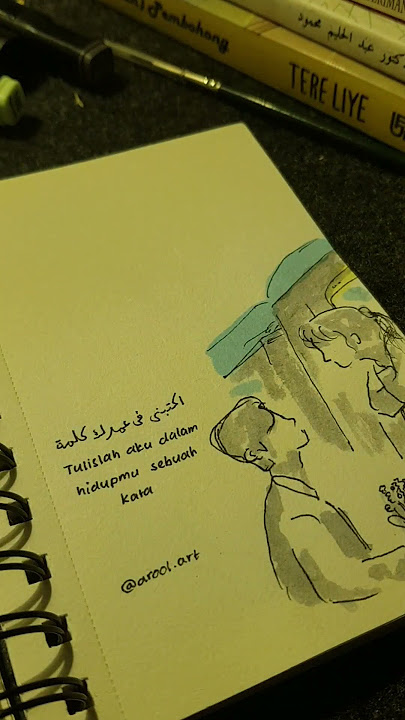 Pembohong
عبد الحليم محمود
TERE LIYE
اكتبني في عمرك كلمة
Tulislah aku dalam
hidupmu sebuah
kata
@arool.art